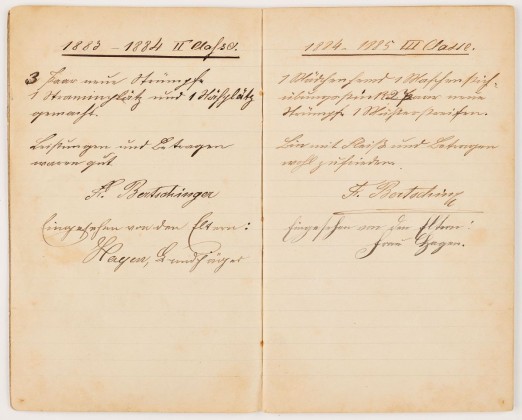 1883 – 1884 II Classe.
3 Paar neue Strümpfe
1 Straminplätz und 1 Nähplätz
gemacht.
Leistungen und Betragen
waren gut
A. Bertschinger
Eingesehen von den Eltern:
Hagen,
1884 – 1885 III Classe.
1 Mädchenhemd 1 Maschenstich-
übungsstück 2 Paar neue
Strümpfe 1 Musterstreifen.
Bin mit Fleiß und Betragen
wohl zufrieden.
F. Bertsching
Eingesehen von den Eltern:
Frau Hagen.